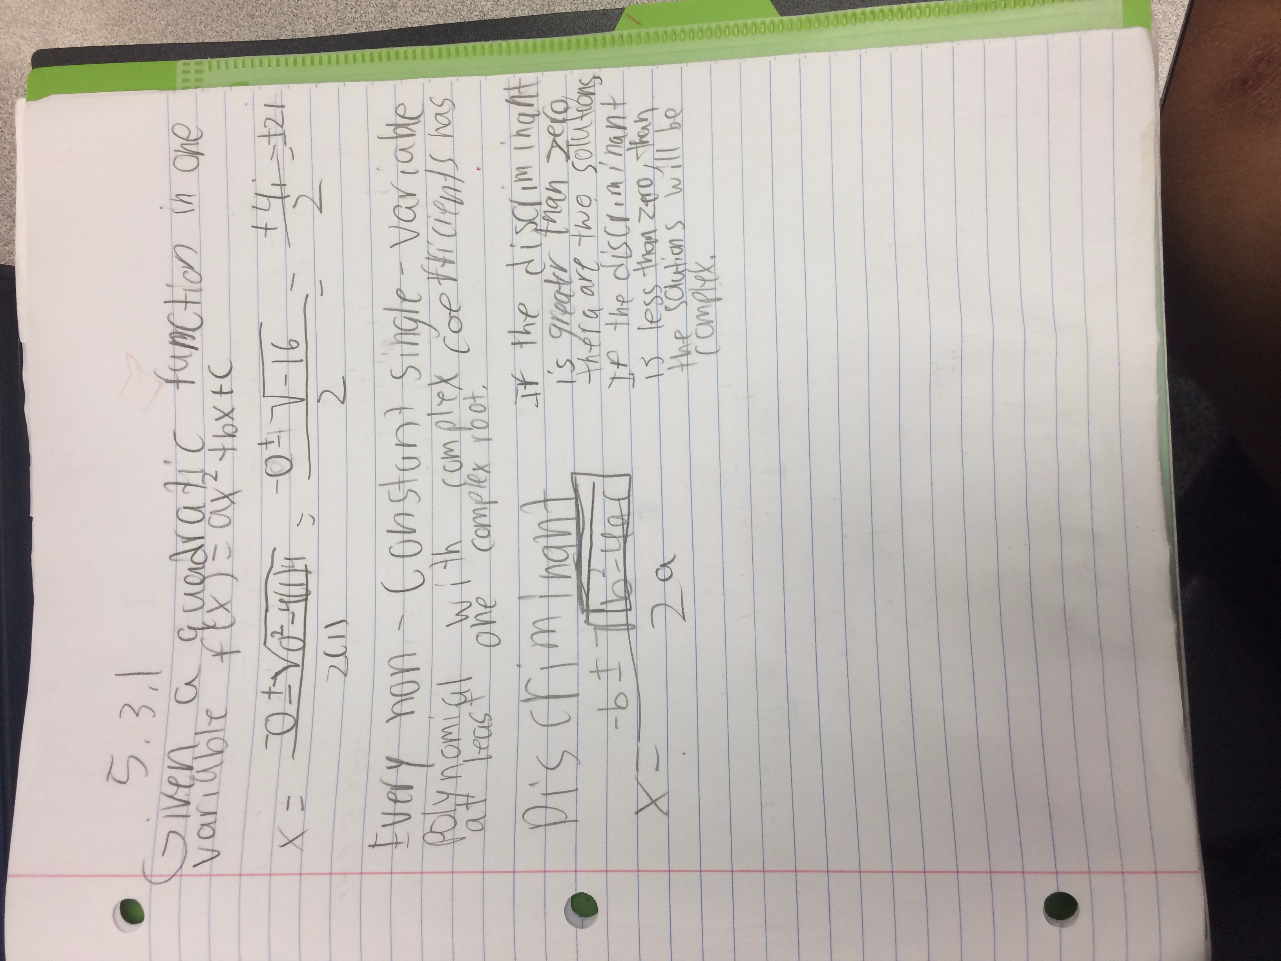 5.3.1
Given a quadratic function in one
variable f(x) = ax² + bx + c
x = -0 ± √0² - 4(1)4 / 2(1) = -0 ± √-16 / 2 = ±4i / 2 = ±2i
Every non-constant single-variable
polynomial with complex coefficients has
at least one complex root.
Discriminant
x = -b ± √b² - 4ac / 2a
If the discriminant
is greater than zero,
thera are two solutions
If the discriminant
is less than zero, than
the solutions will be
complex.